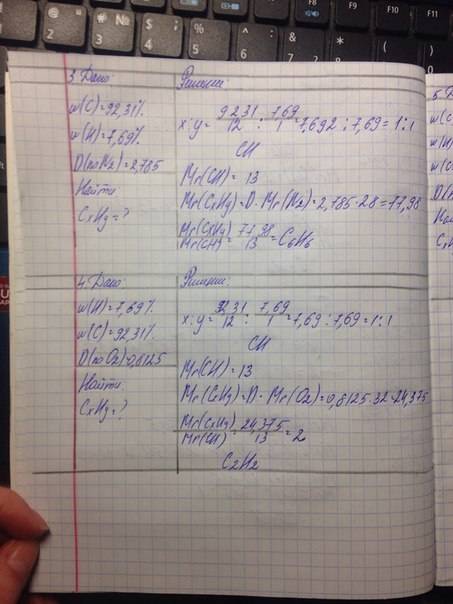 3. Дано:
Решение:
w(C)=92,31%
w(H)=7,69%
D(по N₂)=2,785
Найти
CxHy=?
x:y=92,31/12:7,69/1=7,692:7,69=1:1
CH
Mr(CH)=13
Mr(CxHy)=D·Mr(N₂)=2,785·28=77,98
Mr(CxHy)/Mr(CH)=77,98/13=C₆H₆
4. Дано:
Решение:
w(H)=7,69%
w(C)=92,31%
D(по O₂)=0,8125
Найти
CxHy=?
x:y=92,31/12:7,69/1=7,69:7,69=1:1
CH
Mr(CH)=13
Mr(CxHy)=D·Mr(O₂)=0,8125·32=24,375
Mr(CxHy)/Mr(CH)=24,375/13=2
C₂H₂
5. D
w(C
w(H
Най
CxH
F7
F8
F9
F10
F11